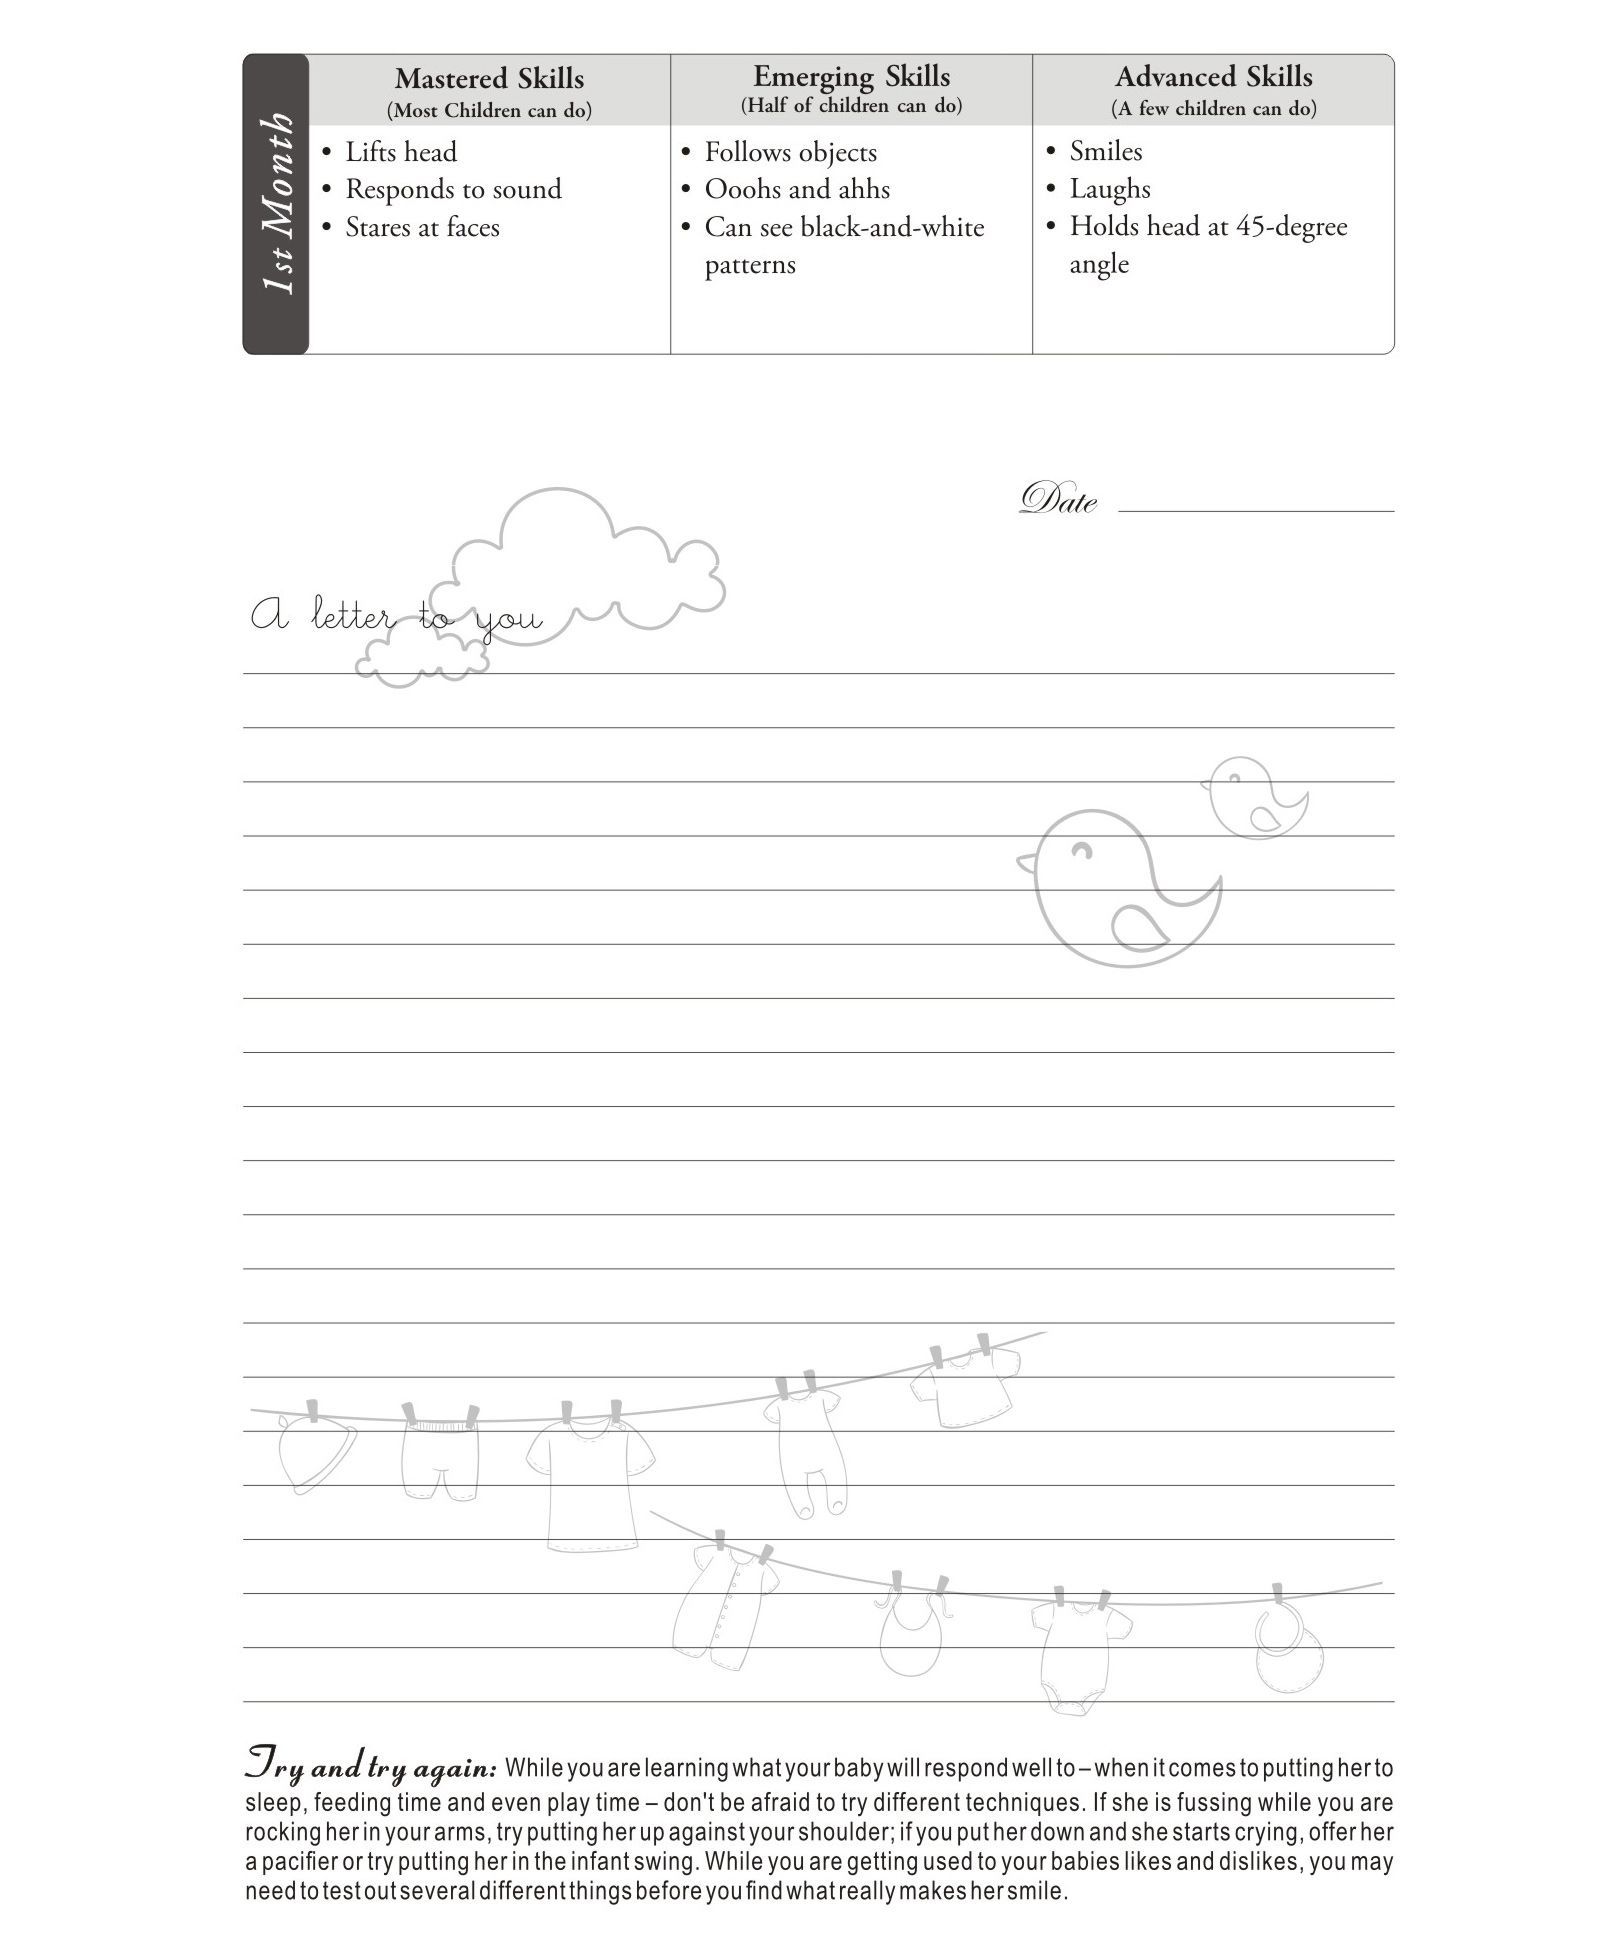 1st Month
Mastered Skills
(Most Children can do)
• Lifts head
• Responds to sound
• Stares at faces
Emerging Skills
(Half of children can do)
• Follows objects
• Ooohs and ahhs
• Can see black-and-white
patterns
Advanced Skills
(A few children can do)
• Smiles
• Laughs
• Holds head at 45-degree
angle
Date
A letter to you
Try and try again: While you are learning what your baby will respond well to – when it comes to putting her to
sleep, feeding time and even play time – don't be afraid to try different techniques. If she is fussing while you are
rocking her in your arms, try putting her up against your shoulder; if you put her down and she starts crying, offer her
a pacifier or try putting her in the infant swing. While you are getting used to your babies likes and dislikes, you may
need to test out several different things before you find what really makes her smile.